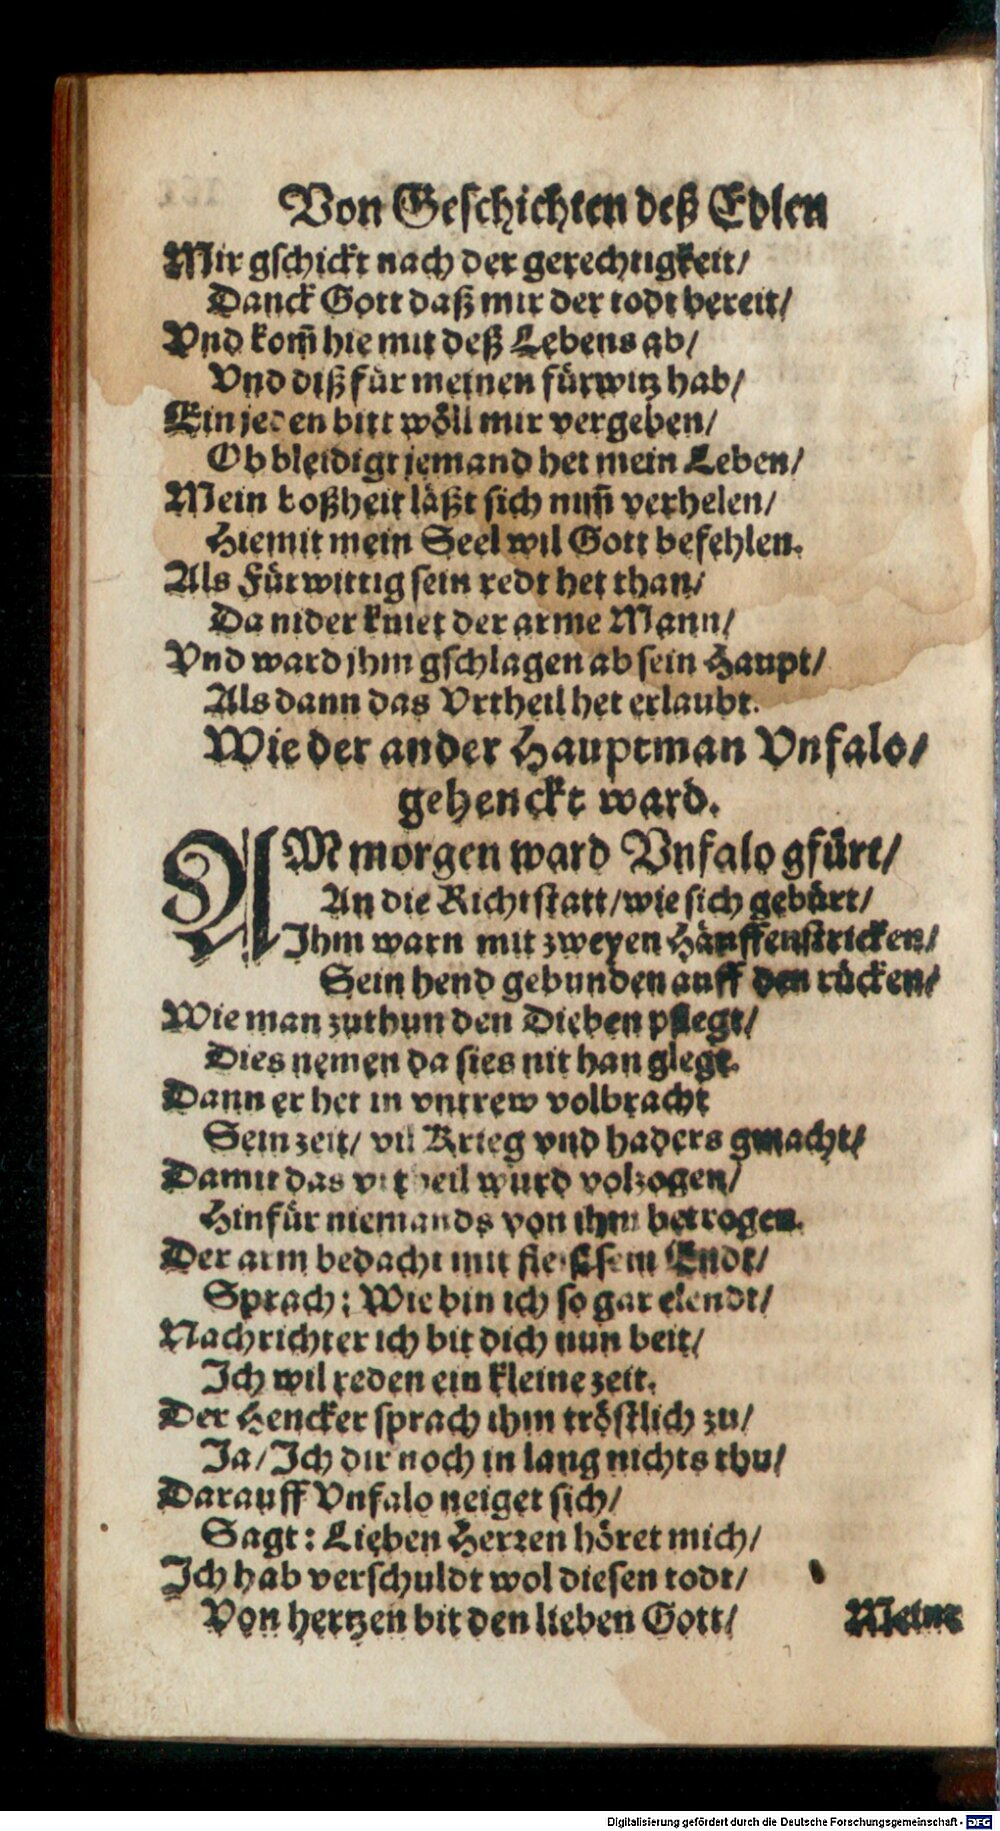 Von Geschichten deß Edlen
Mir gschickt nach der gerechtigkeit/
Danck Gott daß mir der todt bereit/
Vnd kom̃ hie mit deß Lebens ab/
Vnd diß für meinen fürwitz hab/
Ein jeden bitt wöll mir vergeben/
Ob bleidigt jemand het mein Leben/
Mein boßheit läßt sich nim̃ verhelen/
Hiemit mein Seel wil Gott befehlen.
Als Fürwittig sein redt het than/
Da nider kniet der arme Mann/
Vnd ward jhm gschlagen ab sein Haupt/
Als dann das Vrtheil het erlaubt.
Wie der ander Hauptman Vnfalo/
gehenckt ward.
AM morgen ward Vnfalo gfürt/
An die Richtstatt/ wie sich gebürt/
Ihm warn mit zweyen Hänffenstricken/
Sein hend gebunden auff den rücken/
Wie man zuthun den Dieben pflegt/
Dies nemen da sies nit han glegt.
Dann er het in vntrew volbracht
Sein zeit/ vil Krieg vnd haders gmacht/
Damit das vrtheil würd volzogen/
Hinfür niemands von ihm betrogen.
Der arm bedacht mit fleiß sein Endt/
Sprach: Wie bin ich so gar elendt/
Nachrichter ich bit dich nun beit/
Ich wil reden ein kleine zeit.
Der Hencker sprach ihm tröstlich zu/
Ja/ Ich dir noch in lang nichts thu/
Darauff Vnfalo neiget sich/
Sagt: Lieben Herren höret mich/
Ich hab verschuldt wol diesen todt/
Von hertzen bit den lieben Gott/
Meine
Digitalisierung gefördert durch die Deutsche Forschungsgemeinschaft - DFG